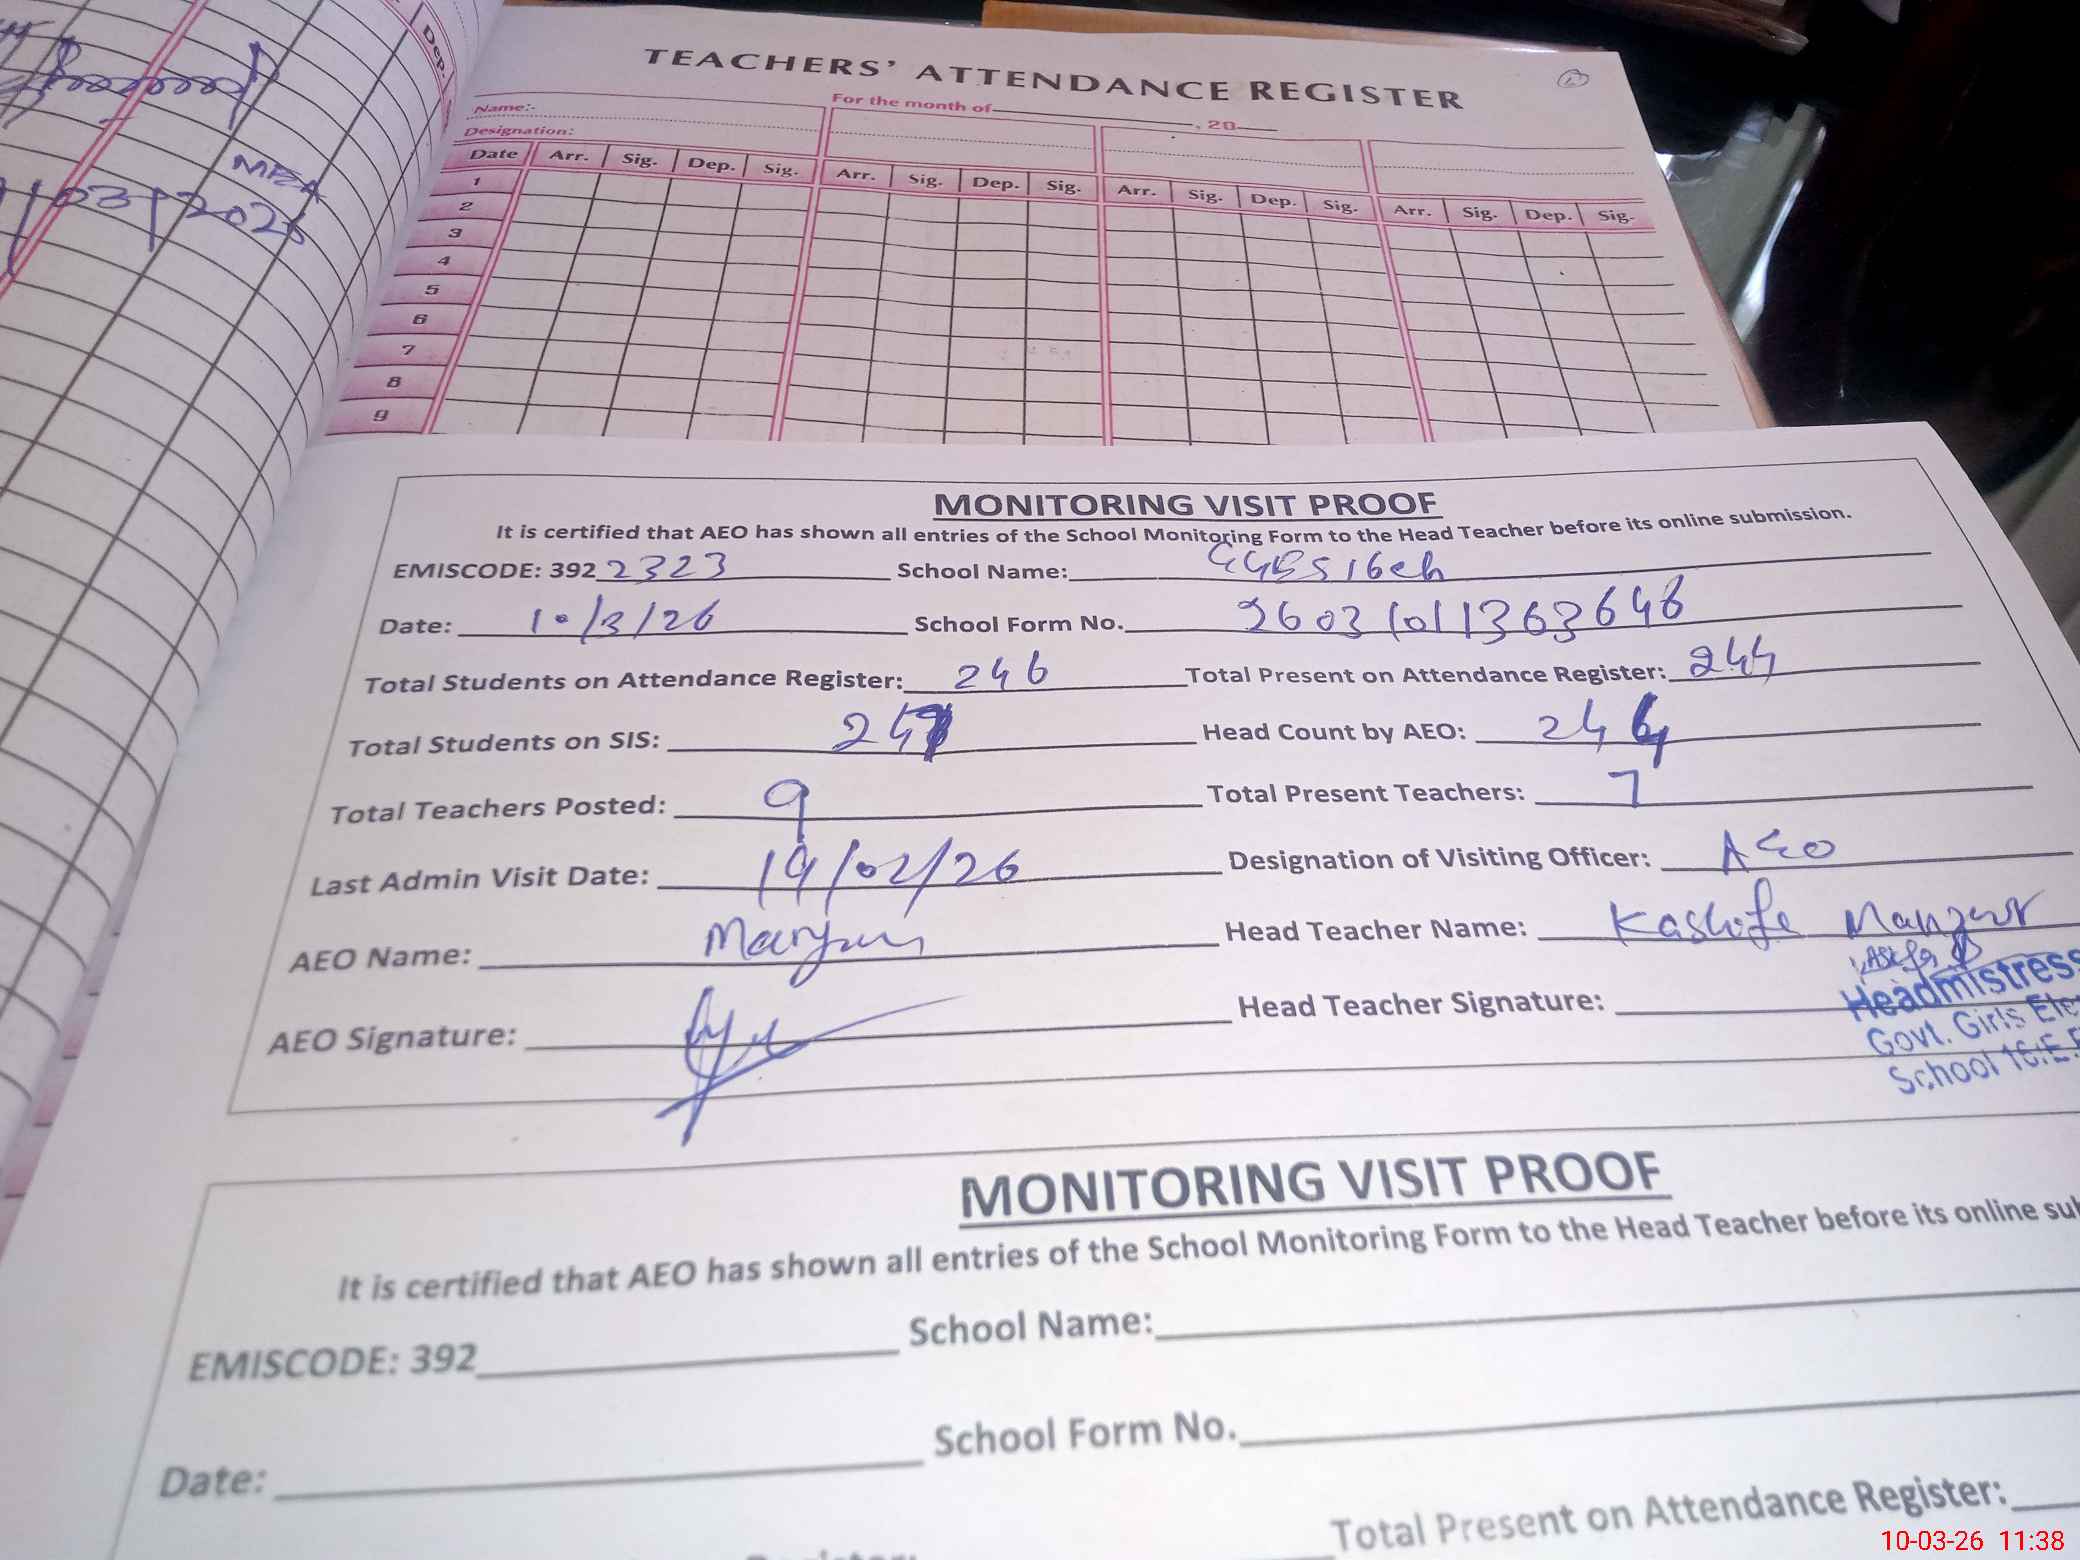 Dep.
MEA
/03/2026
TEACHERS' ATTENDANCE REGISTER
Name:-
For the month of , 20
Designation:
Date Arr. Sig. Dep. Sig. Arr. Sig. Dep. Sig. Arr. Sig. Dep. Sig. Arr. Sig. Dep. Sig.
1
2
3
4
5
6
7
8
9
MONITORING VISIT PROOF
It is certified that AEO has shown all entries of the School Monitoring Form to the Head Teacher before its online submission.
EMISCODE: 392 2323 School Name: GGES 16eb
Date: 10/3/26 School Form No. 26031011363646
Total Students on Attendance Register: 246 Total Present on Attendance Register: 244
Total Students on SIS: Head Count by AEO: 244
Total Teachers Posted: 9 Total Present Teachers: 7
Last Admin Visit Date: 19/02/26 Designation of Visiting Officer: AEO
AEO Name: Maryam Head Teacher Name: Kashifa Manzoor
AEO Signature: Head Teacher Signature:
Headmistress
Govt. Girls Ele
School 16.E.B
MONITORING VISIT PROOF
It is certified that AEO has shown all entries of the School Monitoring Form to the Head Teacher before its online sub
EMISCODE: 392 School Name:
Date: School Form No.
Total Present on Attendance Register:
10-03-26 11:38